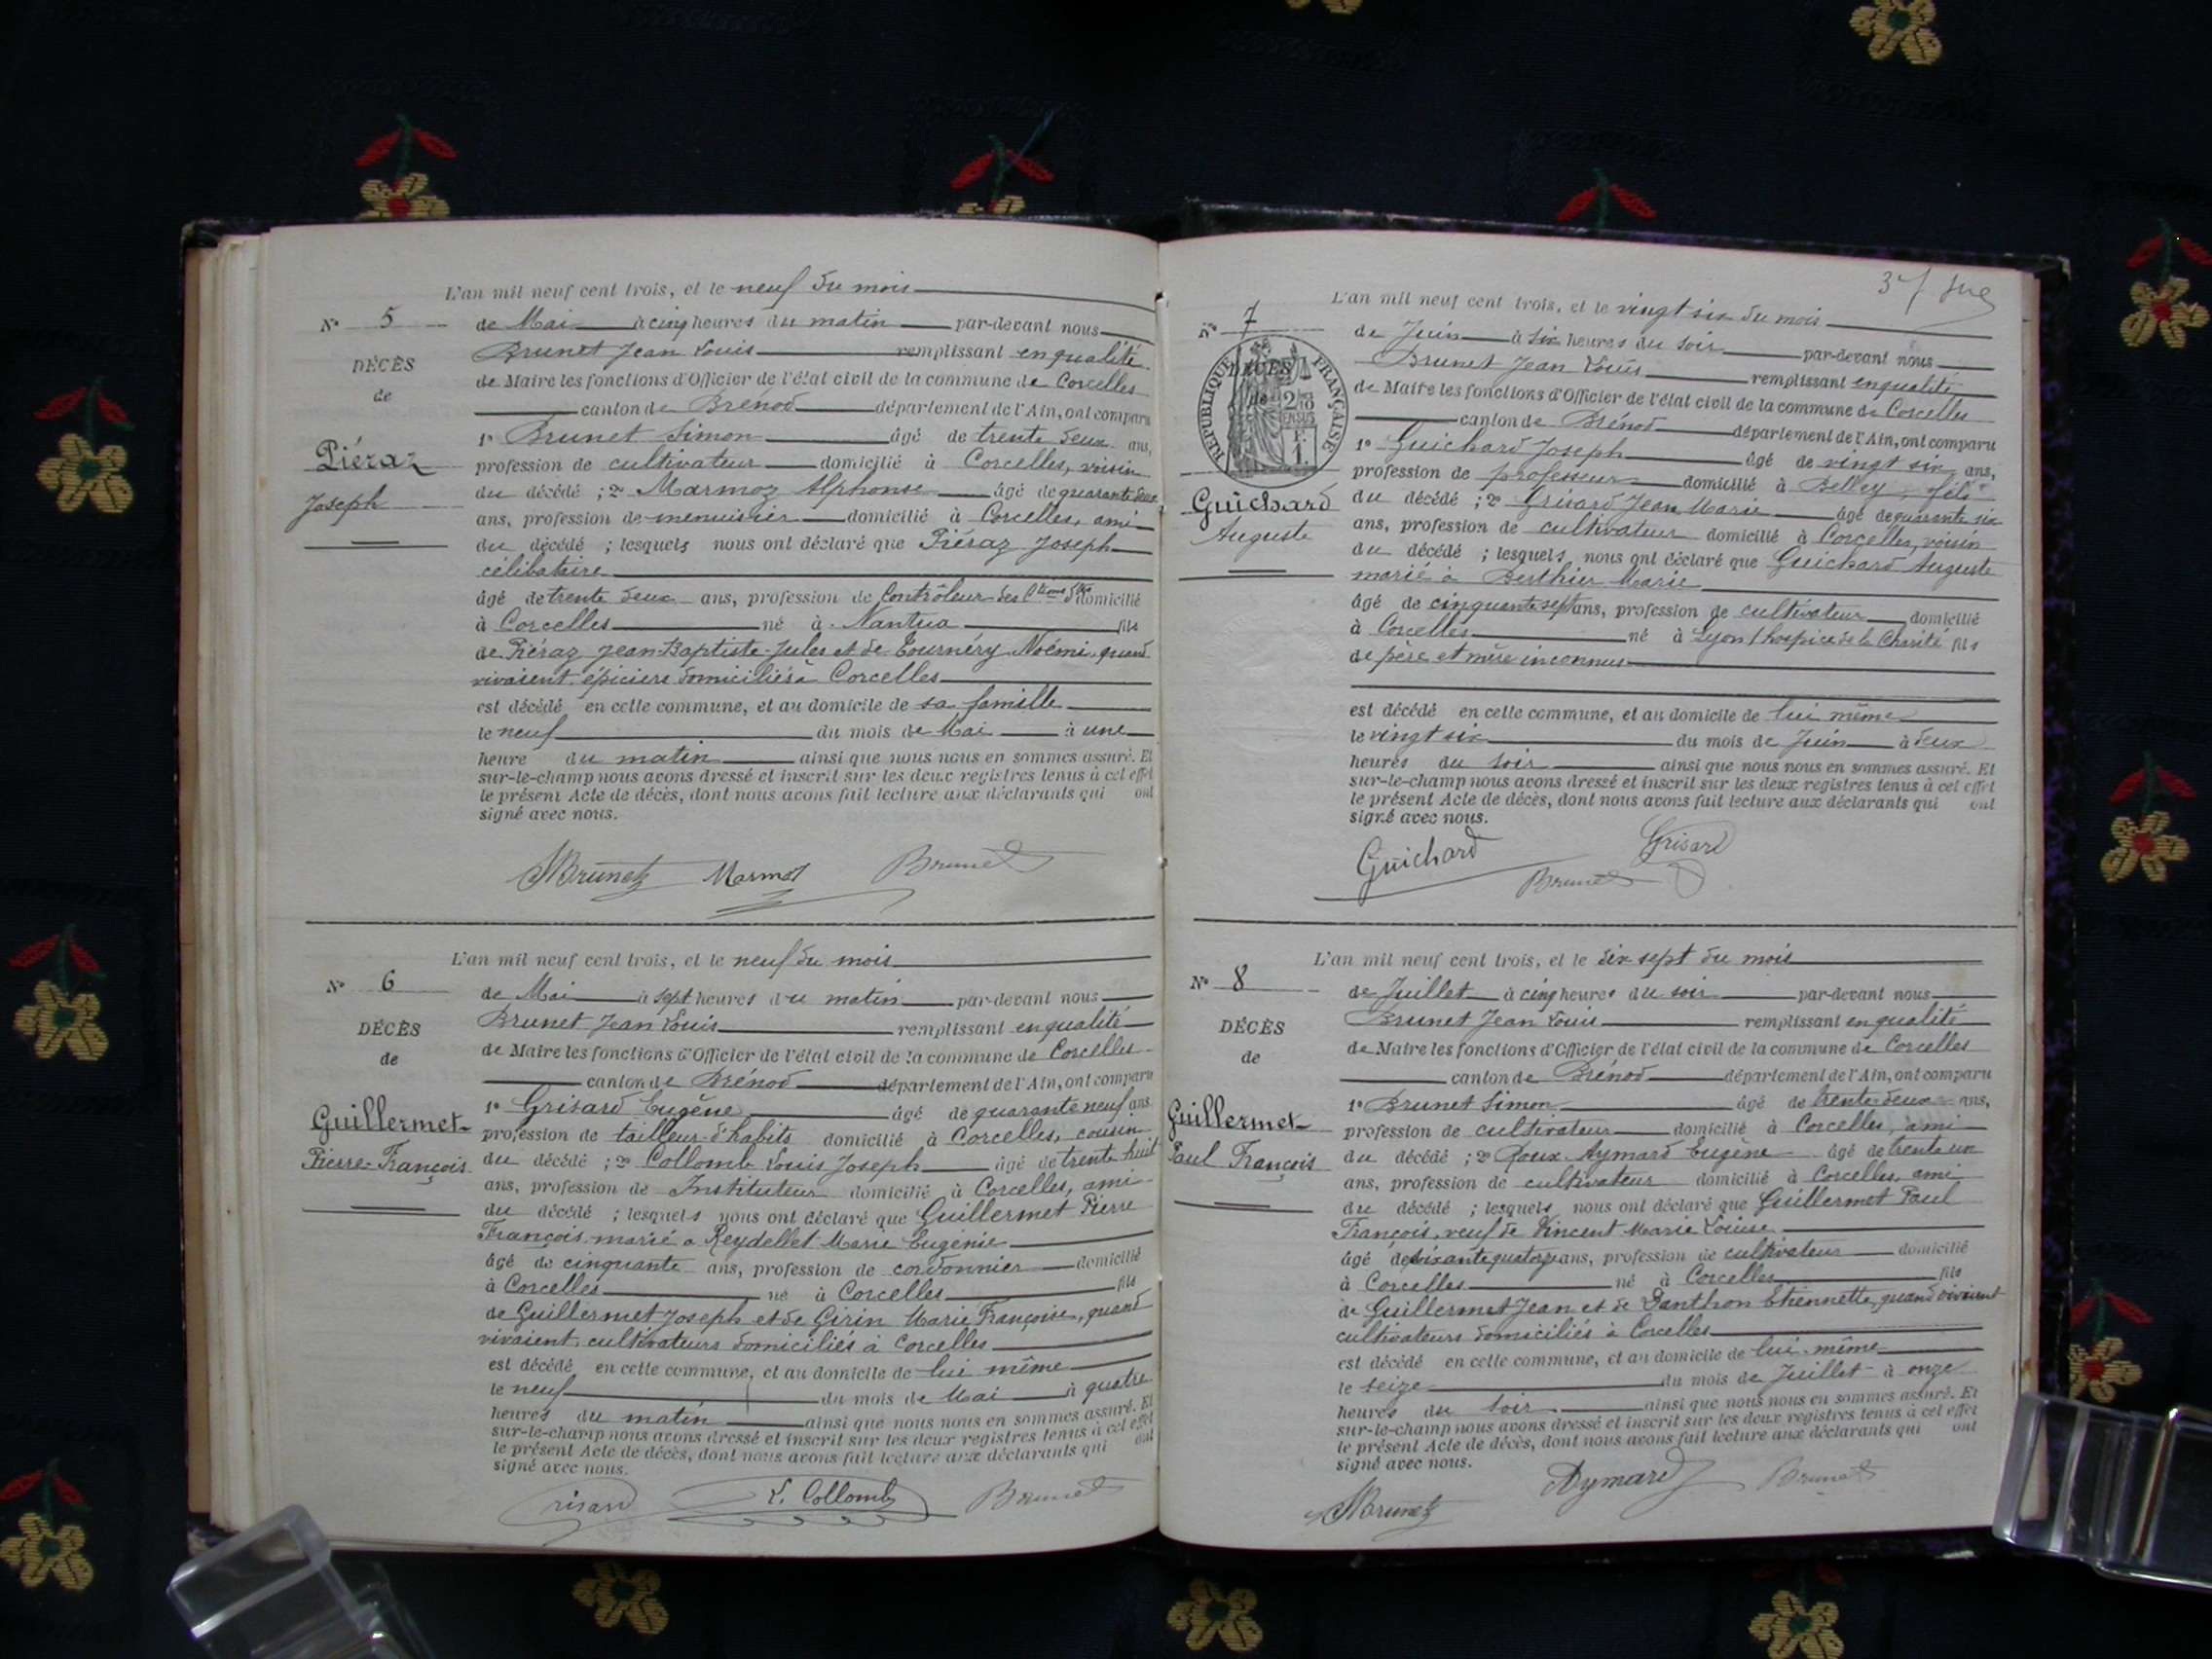 L'an mil neuf cent trois, et le neuf du mois
N° 5
de Mai à cinq heures du matin par-devant nous
Brunet Jean Louis remplissant en qualité
DÉCÈS
de Maire les fonctions d'Officier de l'état civil de la commune de Corcelles
de
canton de Brénod département de l'Ain, ont comparu
1° Brunet Simon âgé de trente deux ans,
Piéraz
profession de cultivateur domicilié à Corcelles, voisin
du décédé ; 2° Marmoz Alphonse âgé de quarante deux
Joseph
ans, profession de menuisier domicilié à Corcelles, ami
du décédé ; lesquels nous ont déclaré que Piéraz Joseph
célibataire
âgé de trente deux ans, profession de Contrôleur des domicilié
à Corcelles né à Nantua fils
de Piéraz Jean-Baptiste-Jules et de Tournéry Noémi, quand
vivaient épiciers domiciliés à Corcelles
est décédé en cette commune, et au domicile de sa famille
le neuf du mois de Mai à une
heure du matin ainsi que nous nous en sommes assuré. Et
sur-le-champ nous avons dressé et inscrit sur les deux registres tenus à cet effet
le présent Acte de décès, dont nous avons fait lecture aux déclarants qui ont
signé avec nous.
Brunet Marmoz Brunet
L'an mil neuf cent trois, et le neuf du mois
N° 6
de Mai à sept heures du matin par-devant nous
Brunet Jean Louis remplissant en qualité
DÉCÈS
de Maire les fonctions d'Officier de l'état civil de la commune de Corcelles
de
canton de Brénod département de l'Ain, ont comparu
1° Grisard Eugène âgé de quarante neuf ans
Guillermet
profession de tailleur d'habits domicilié à Corcelles, cousin
Pierre-François
du décédé ; 2° Collomb Louis Joseph âgé de trente huit
ans, profession de Instituteur domicilié à Corcelles, ami
du décédé ; lesquels nous ont déclaré que Guillermet Pierre
François marié à Reydellet Marie Eugénie
âgé de cinquante ans, profession de cordonnier domicilié
à Corcelles né à Corcelles fils
de Guillermet Joseph et de Girin Marie Françoise, quand
vivaient, cultivateurs domiciliés à Corcelles
est décédé en cette commune, et au domicile de lui même
le neuf du mois de Mai à quatre
heures du matin ainsi que nous nous en sommes assuré. Et
sur-le-champ nous avons dressé et inscrit sur les deux registres tenus à cet effet
le présent Acte de décès, dont nous avons fait lecture aux déclarants qui ont
signé avec nous.
Grisard L. Collomb Brunet
L'an mil neuf cent trois, et le vingt six du mois
N° 7
de Juin à six heures du soir par-devant nous
Brunet Jean Louis remplissant en qualité
DÉCÈS
de Maire les fonctions d'Officier de l'état civil de la commune de Corcelles
de
RÉPUBLIQUE FRANÇAISE
canton de Brénod département de l'Ain, ont comparu
1° Guichard Joseph âgé de vingt six ans,
profession de professeur domicilié à Belley, fils
Guichard
du décédé ; 2° Grisard Jean Marie âgé de quarante six
Auguste
ans, profession de cultivateur domicilié à Corcelles, voisin
du décédé ; lesquels nous ont déclaré que Guichard Auguste
marié à Berthier Marie
âgé de cinquante sept ans, profession de cultivateur domicilié
à Corcelles né à Lyon, hospice de la Charité fils
de père et mère inconnus
est décédé en cette commune, et au domicile de lui même
le vingt six du mois de Juin à deux
heures du soir ainsi que nous nous en sommes assuré. Et
sur-le-champ nous avons dressé et inscrit sur les deux registres tenus à cet effet
le présent Acte de décès, dont nous avons fait lecture aux déclarants qui ont
signé avec nous.
Guichard Grisard
Brunet
L'an mil neuf cent trois, et le dix sept du mois
N° 8
de Juillet à cinq heures du soir par-devant nous
Brunet Jean Louis remplissant en qualité
DÉCÈS
de Maire les fonctions d'Officier de l'état civil de la commune de Corcelles
de
canton de Brénod département de l'Ain, ont comparu
1° Brunet Simon âgé de trente deux ans,
Guillermet
profession de cultivateur domicilié à Corcelles, ami
Paul François
du décédé ; 2° Roux-Aymard Eugène âgé de trente un
ans, profession de cultivateur domicilié à Corcelles, ami
du décédé ; lesquels nous ont déclaré que Guillermet Paul
François, veuf de Vincent Marie Louise
âgé de soixante quatorze ans, profession de cultivateur domicilié
à Corcelles né à Corcelles fils
de Guillermet Jean et de Danthon Etiennette, quand vivaient
cultivateurs domiciliés à Corcelles
est décédé en cette commune, et au domicile de lui-même
le seize du mois de Juillet à onze
heures du soir ainsi que nous nous en sommes assuré. Et
sur-le-champ nous avons dressé et inscrit sur les deux registres tenus à cet effet
le présent Acte de décès, dont nous avons fait lecture aux déclarants qui ont
signé avec nous.
Brunet Aymard Brunet